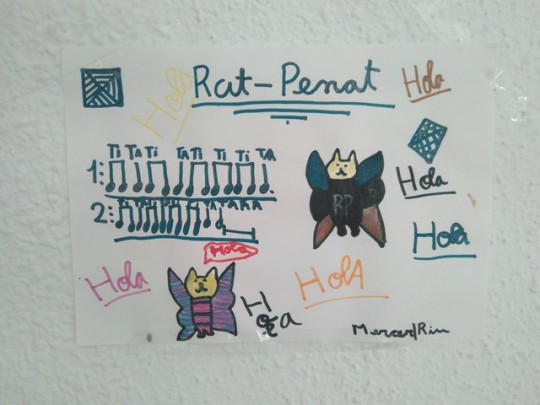 Hola
Rat-Penat
Hola
Ti Ta Ti Ta Ti Ti Ti Ta
1:
Hola
2:
RP
Hola
Hola
Hola
HolA
Hola